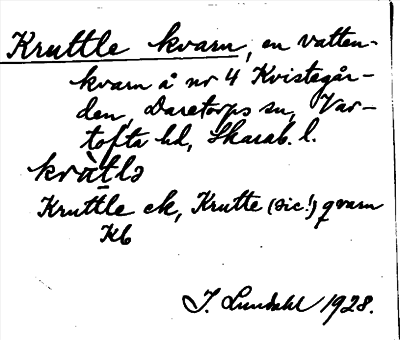 Kruttle kvarn, en vatten-
kvarn å nr 4 Kvistegår-
den, Daretorps sn, Var-
tofta hd, Skarab. l.
kràtlə
Kruttle ek, Krutte (sic!) qvarn
Kb
J. Lundahl 1928.